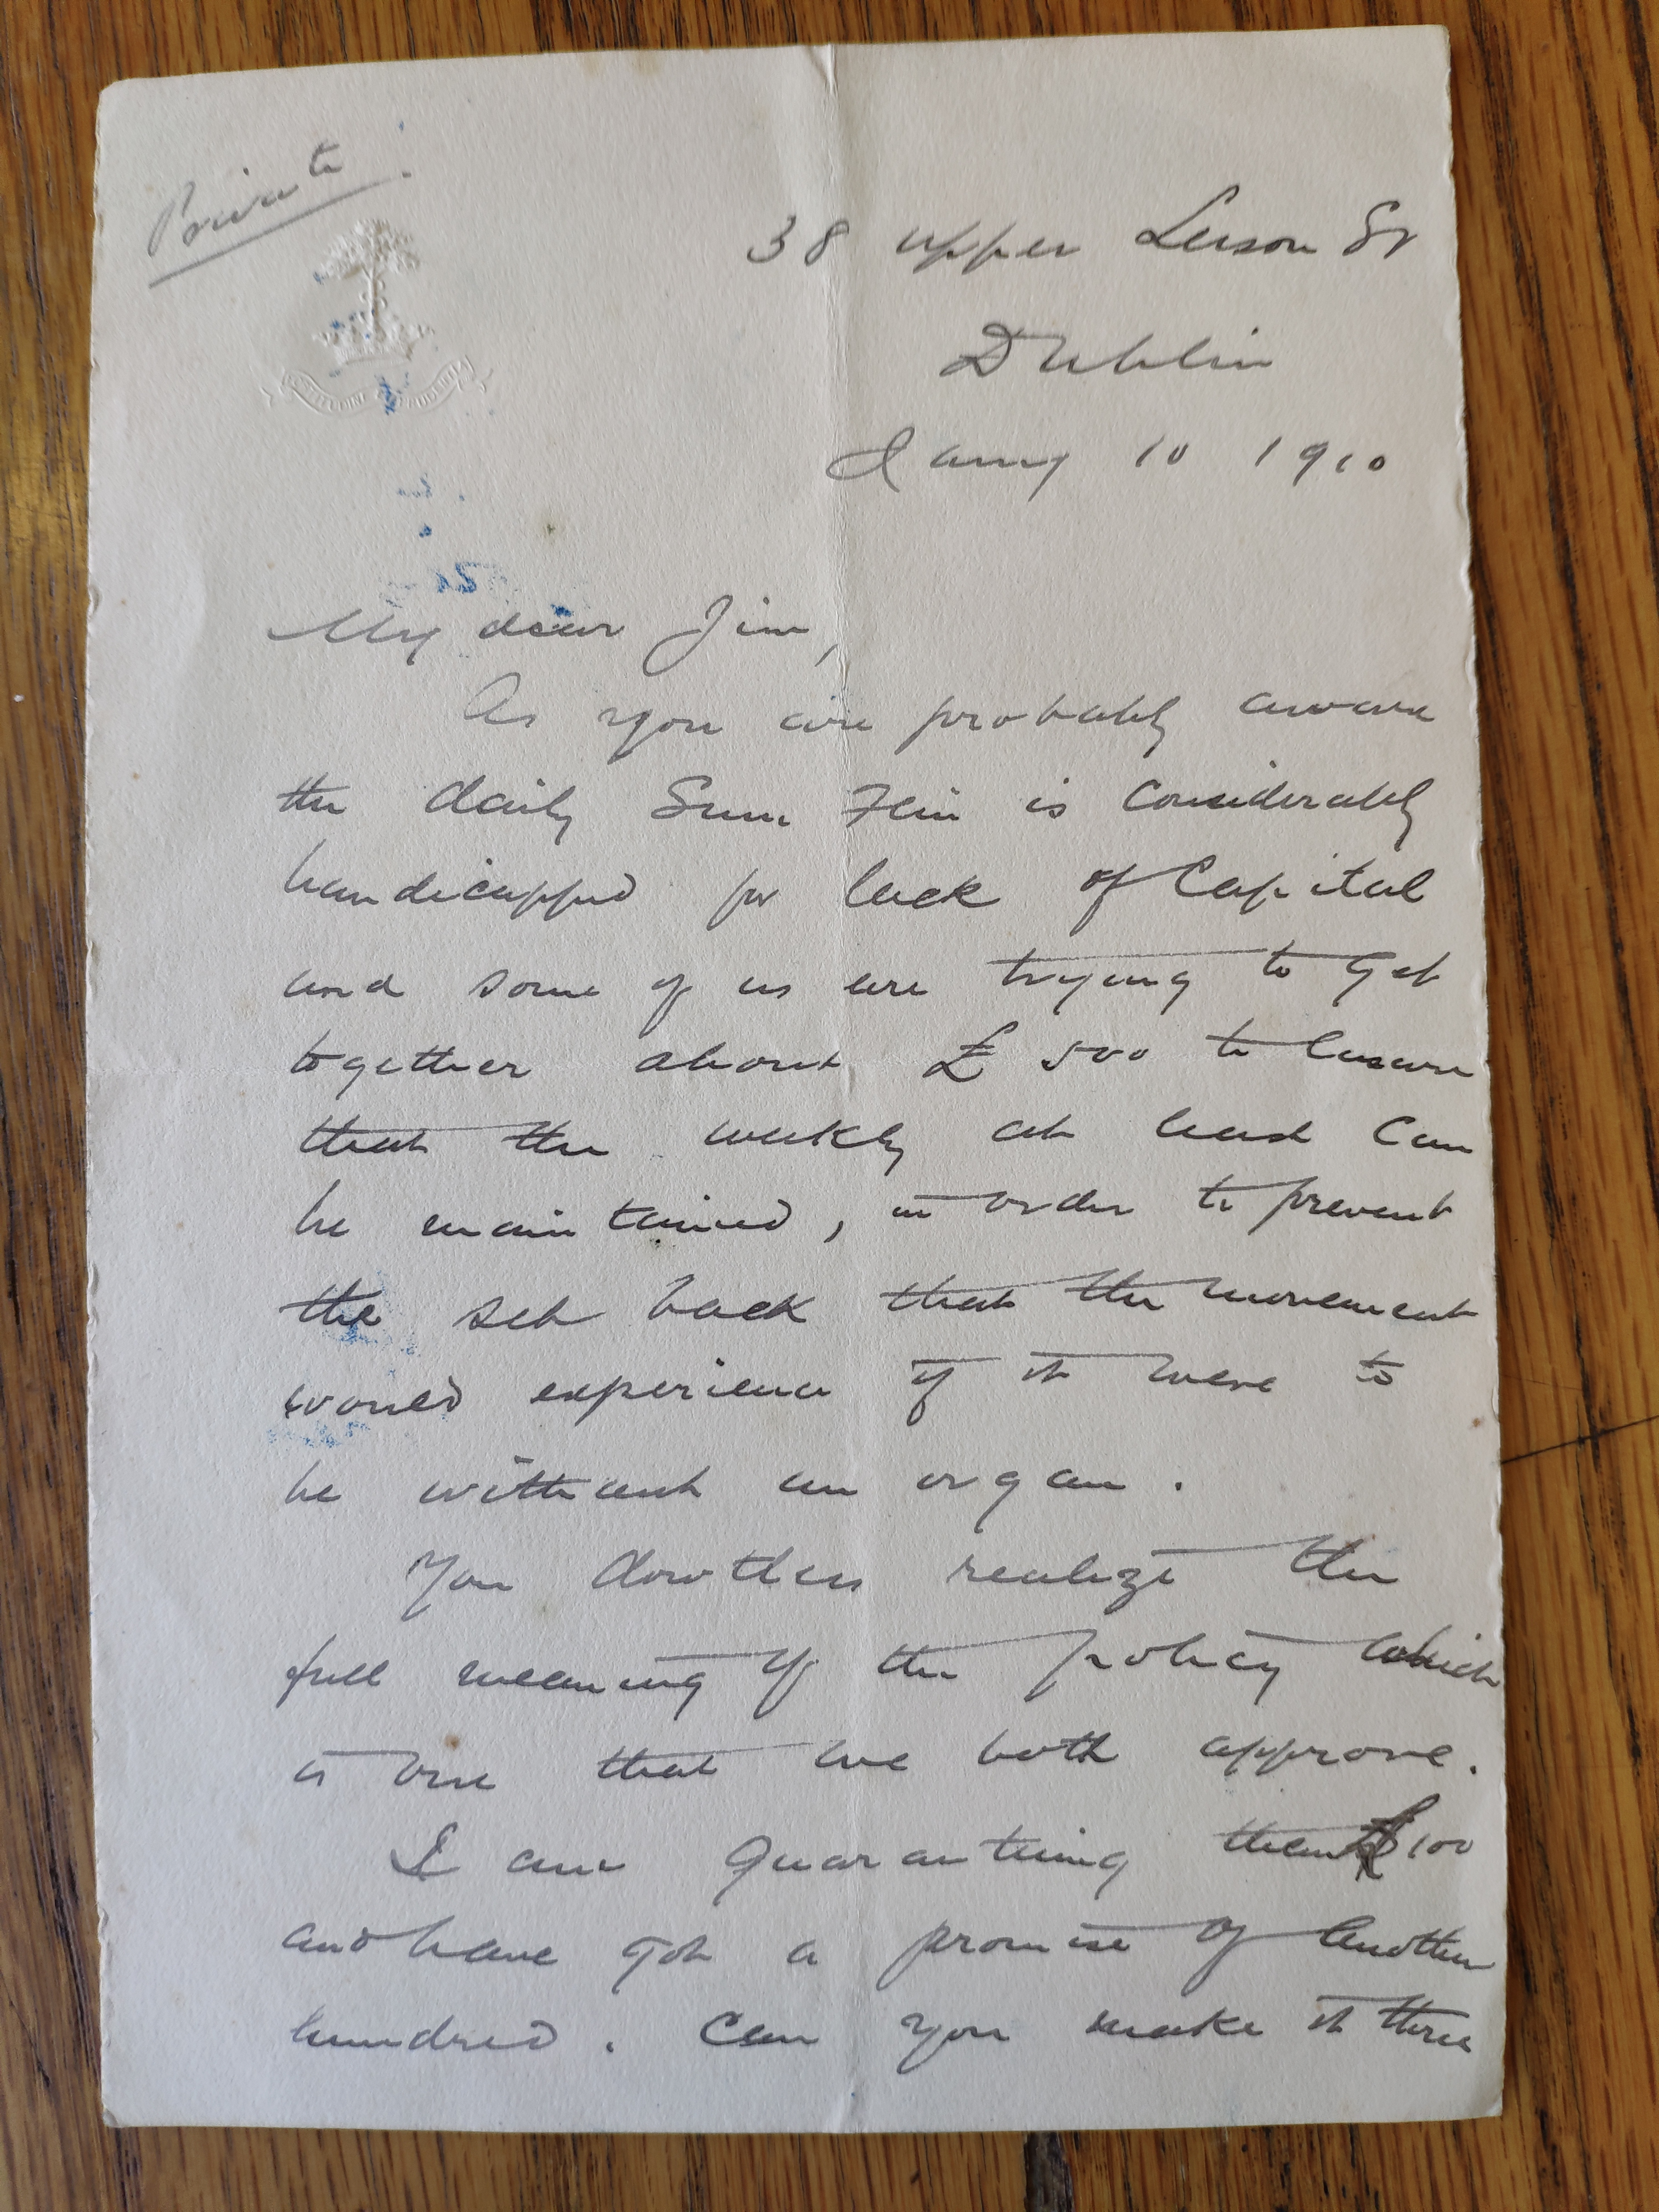 Private
FORTITUDINE ET PRUDENTIA
38 upper Leeson St
Dublin
Jany 10 1910
My dear Jim,
As you are probably aware
the daily Sinn Fein is considerably
handicapped for lack of Capital
and some of us are trying to get
together about £500 to ensure
that the weekly at least can
be maintained, in order to prevent
the set back that the movement
would experience if it were to
be without an organ.
You doubtless realize the
full meaning of the policy which
is one that we both approve.
I am guaranteeing them £100
and have got a promise of another
hundred. Can you make it three